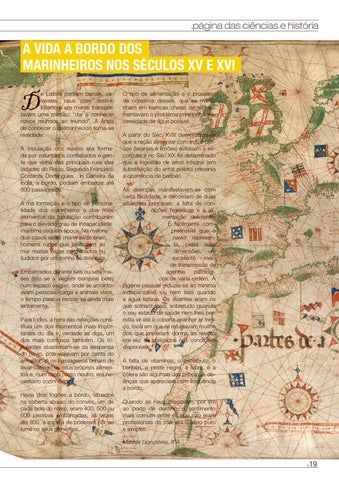 .página das ciências e história
A VIDA A BORDO DOS
MARINHEIROS NOS SÉCULOS XV E XVI
De Lisboa partiam barcas, ca-
ravelas, naus com destino
incerto e em mente transpor-
tavam uma missão: "dar a conhecer
novos mundos ao mundo". A ânsia
de conhecer o desconhecido torna-se
realidade.
A tripulação dos navios era forma-
da por voluntários contratados e gen-
te que vinha das principais ruas das
cidades do Reino. Segundo Francisco
Contente Domingues, in Carreira da
Índia, a bordo, podiam embarcar até
800 passageiros.
A má formação e o tipo de persona-
lidade dos marinheiros e dos mais
elementos da tripulação contribuíram
para o elevado grau de insegurança
marítima daquela época. Na maioria
dos casos estes marinheiros eram
homens rudes que se lançavam ao
mar muitas vezes obrigados ou
iludidos por um sonho de aventura.
Embarcados durante seis ou sete me-
ses (isto se a viagem corresse bem)
num espaço exíguo, onde se amonto-
avam pessoas, carga e animais vivos,
o tempo parecia escoar-se ainda mais
lentamente.
Para todos, a hora das refeições consti-
tuía um dos momentos mais impor-
tantes do dia e, verdade se diga, um
dos mais confusos também. Os tri-
pulantes abasteciam-se da despensa
do navio, pois viajavam por conta do
armador, e os passageiros tinham de
levar consigo os seus próprios alimen-
tos e, num caso como noutro, era ne-
cessário cozinhá-los.
Havia dois fogões a bordo, situados
na coberta abaixo do convés, um de
cada lado do navio, eram 400, 500 ou
600 pessoas embarcadas, às vezes
até 800, à espera de poderem por ao
lume os seus alimentos.
O tipo de alimentação e o processo
de conserva desses, que se manti-
nham em barricas cheias de sal, au-
mentavam o problema principal: a ne-
cessidade de água potável.
A partir do Séc. XVIII descobriu-se
que a ração alimentar com introdução
dos (laranjas e limões) evitavam o es-
corbuto e no Séc XIX foi determinado
que a ingestão de arroz integral (em
substituição do arroz polido) prevenia
a ocorrência de beribéri.
As doenças manifestavam-se com
certa facilidade, e decorriam de duas
situações principais: a falta de con-
dições higiénicas e a ali-
mentação deficiente.
É facilmente com-
preensível que o
navio represen-
ta, pelas suas
dimensões, um
excelente meio
de transmissão de
agentes patológi-
cos de vária ordem. A
higiene pessoal reduzia-se ao mínimo
indispensável ou nem isso quando
a água faltava. Os doentes eram os
que sofriam mais, sobretudo quando
o seu estado de saúde nem lhes per-
mitia vir até à coberta apanhar ar fres-
co, local em que se refugiavam muitos
dos que preferiam dormir ao relento
em vez de o fazerem nas condições
disponíveis.
A falta de vitaminas, o escorbuto, o
beribéri, a peste negra, a febre e a
cólera são algumas das principais do-
enças que apareciam com frequência
a bordo.
Quando as naus chegavam, por fim,
ao porto de destino o sentimento
mais comum entre os que não eram
profissionais do mar era o alívio puro
e simples.
Marisa Gonçalves, 8º4
partes de a
.19